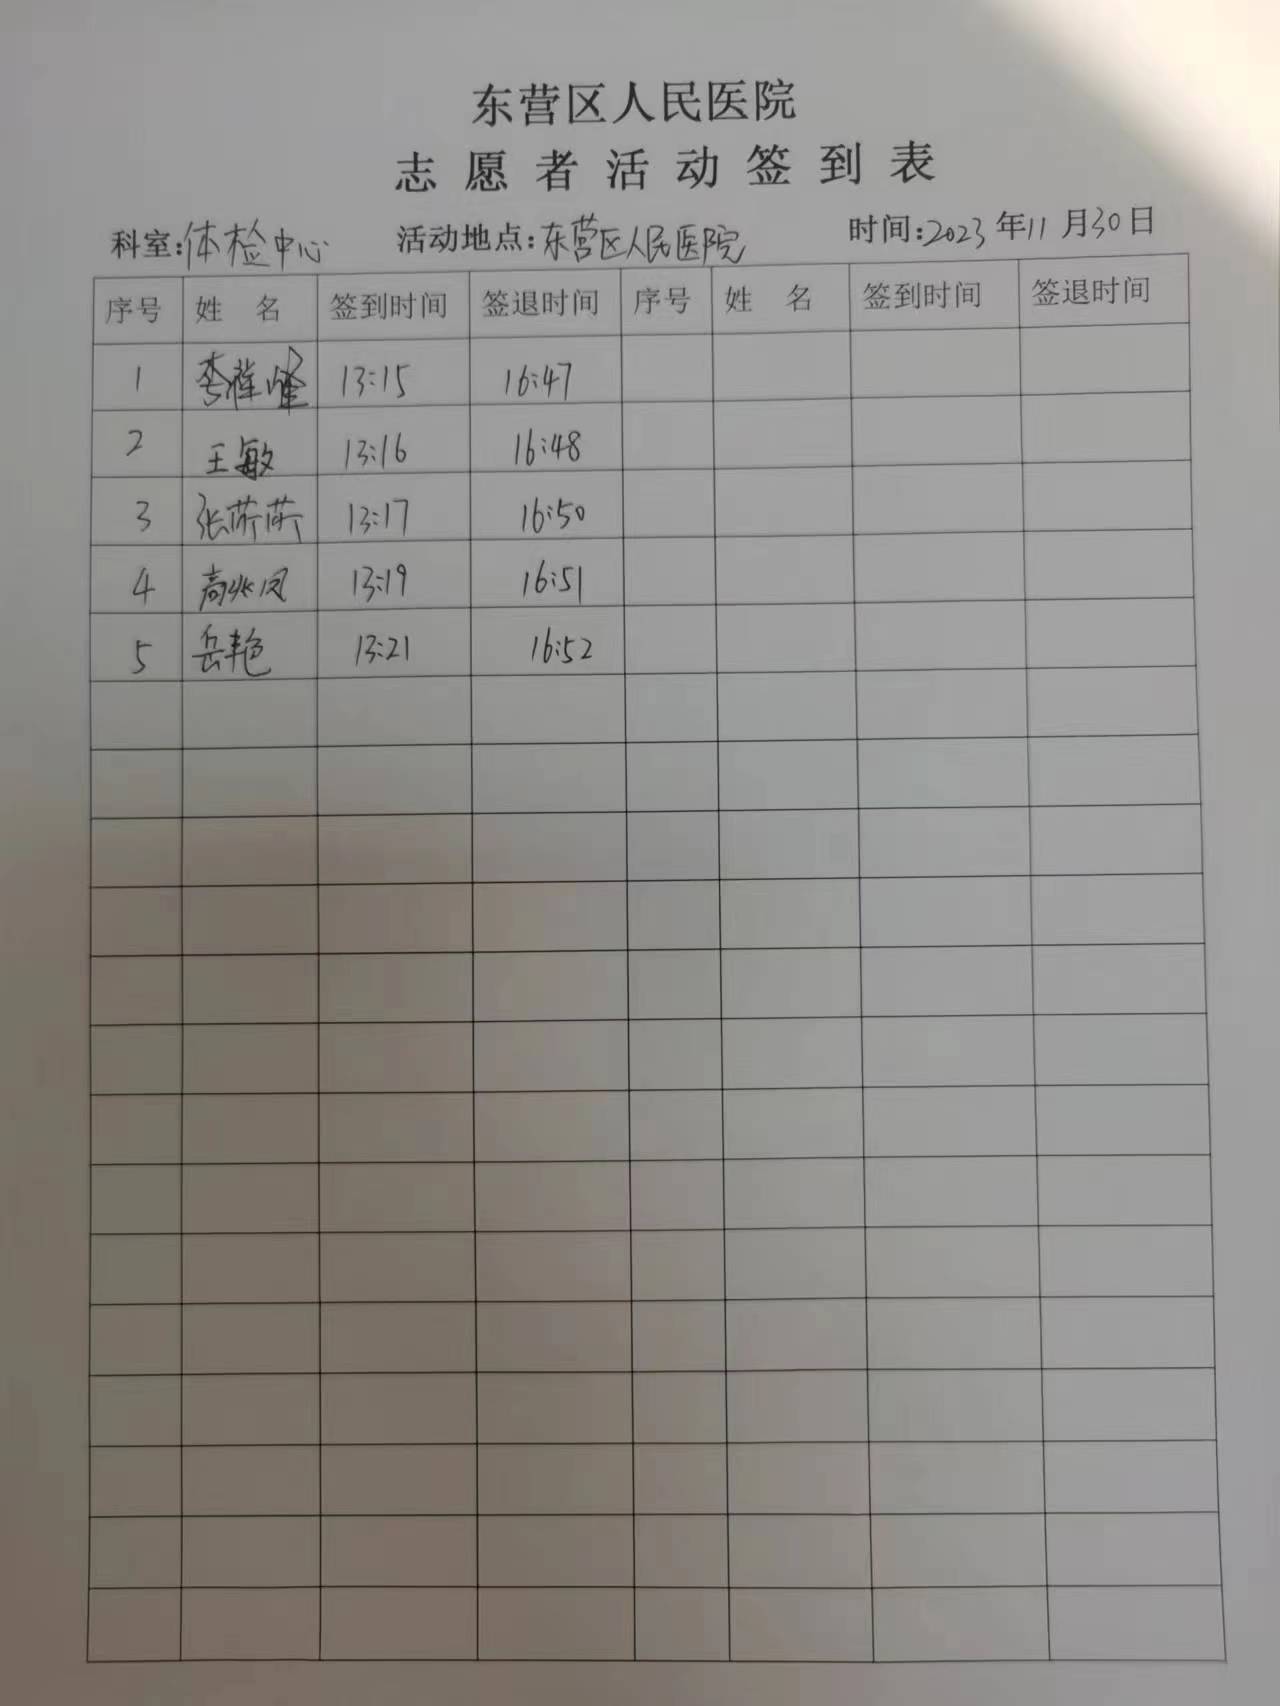 东营区人民医院
志愿者活动签到表
科室:体检中心 活动地点:东营区人民医院 时间:2023年11月30日
序号 姓 名 签到时间 签退时间 序号 姓 名 签到时间 签退时间
1 李祥峰 13:15 16:47
2 王敏 13:16 16:48
3 张 13:17 16:50
4 高兆凤 13:19 16:51
5 岳艳 13:21 16:52